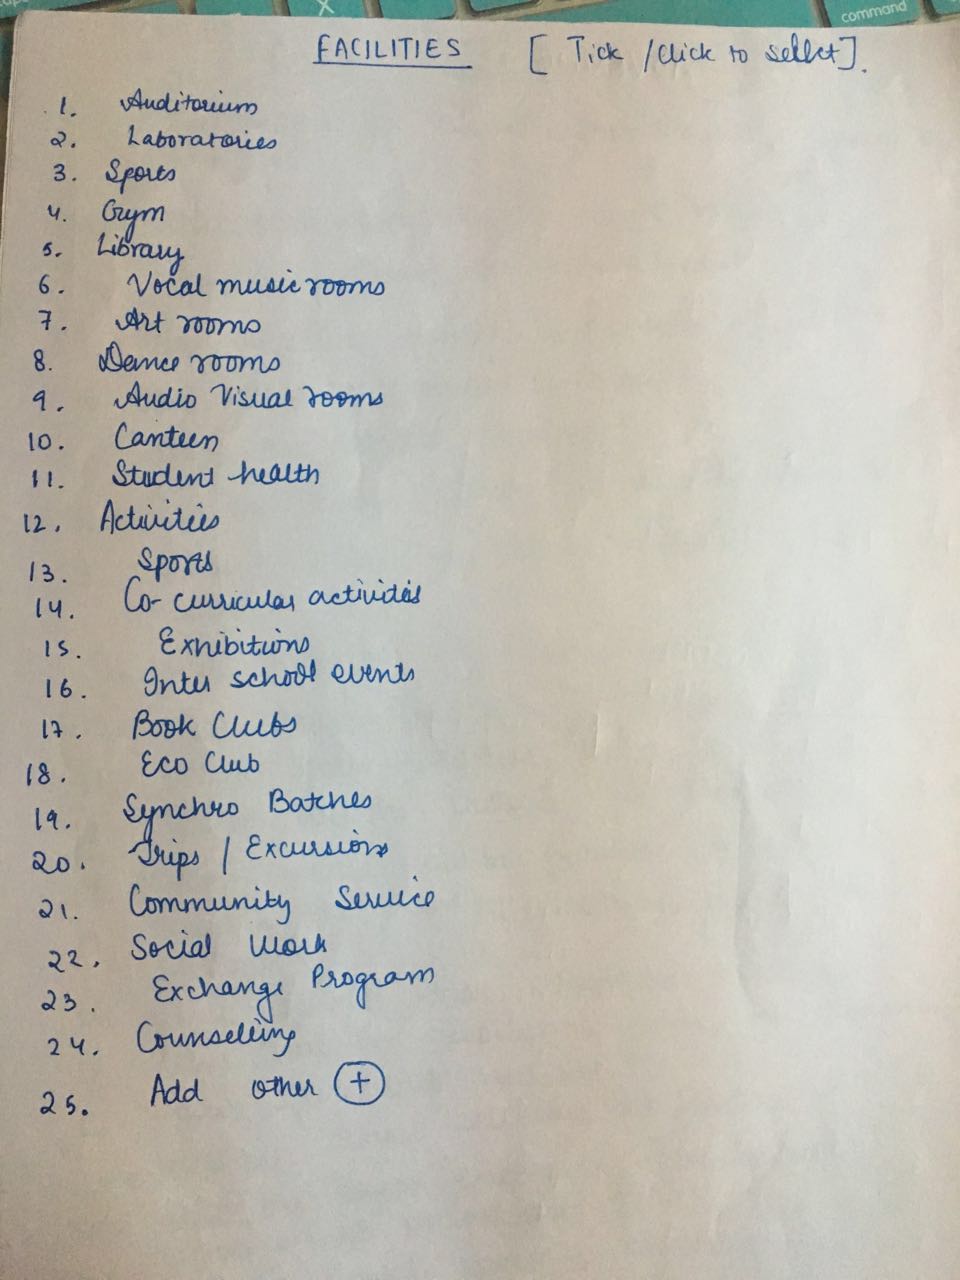 command
FACILITIES [ Tick /Click to sellect].
1. Auditorium
2. Laboratories
3. Sports
4. Gym
5. Library
6. Vocal music rooms
7. Art rooms
8. Dance rooms
9. Audio Visual rooms
10. Canteen
11. Student health
12. Activities
13. Sports
14. Co-curricular activities
15. Exhibitions
16. Inter school events
17. Book Clubs
18. Eco Club
19. Synchro Batches
20. Trips / Excursions
21. Community Service
22. Social Work
23. Exchange Program
24. Counselling
25. Add other +